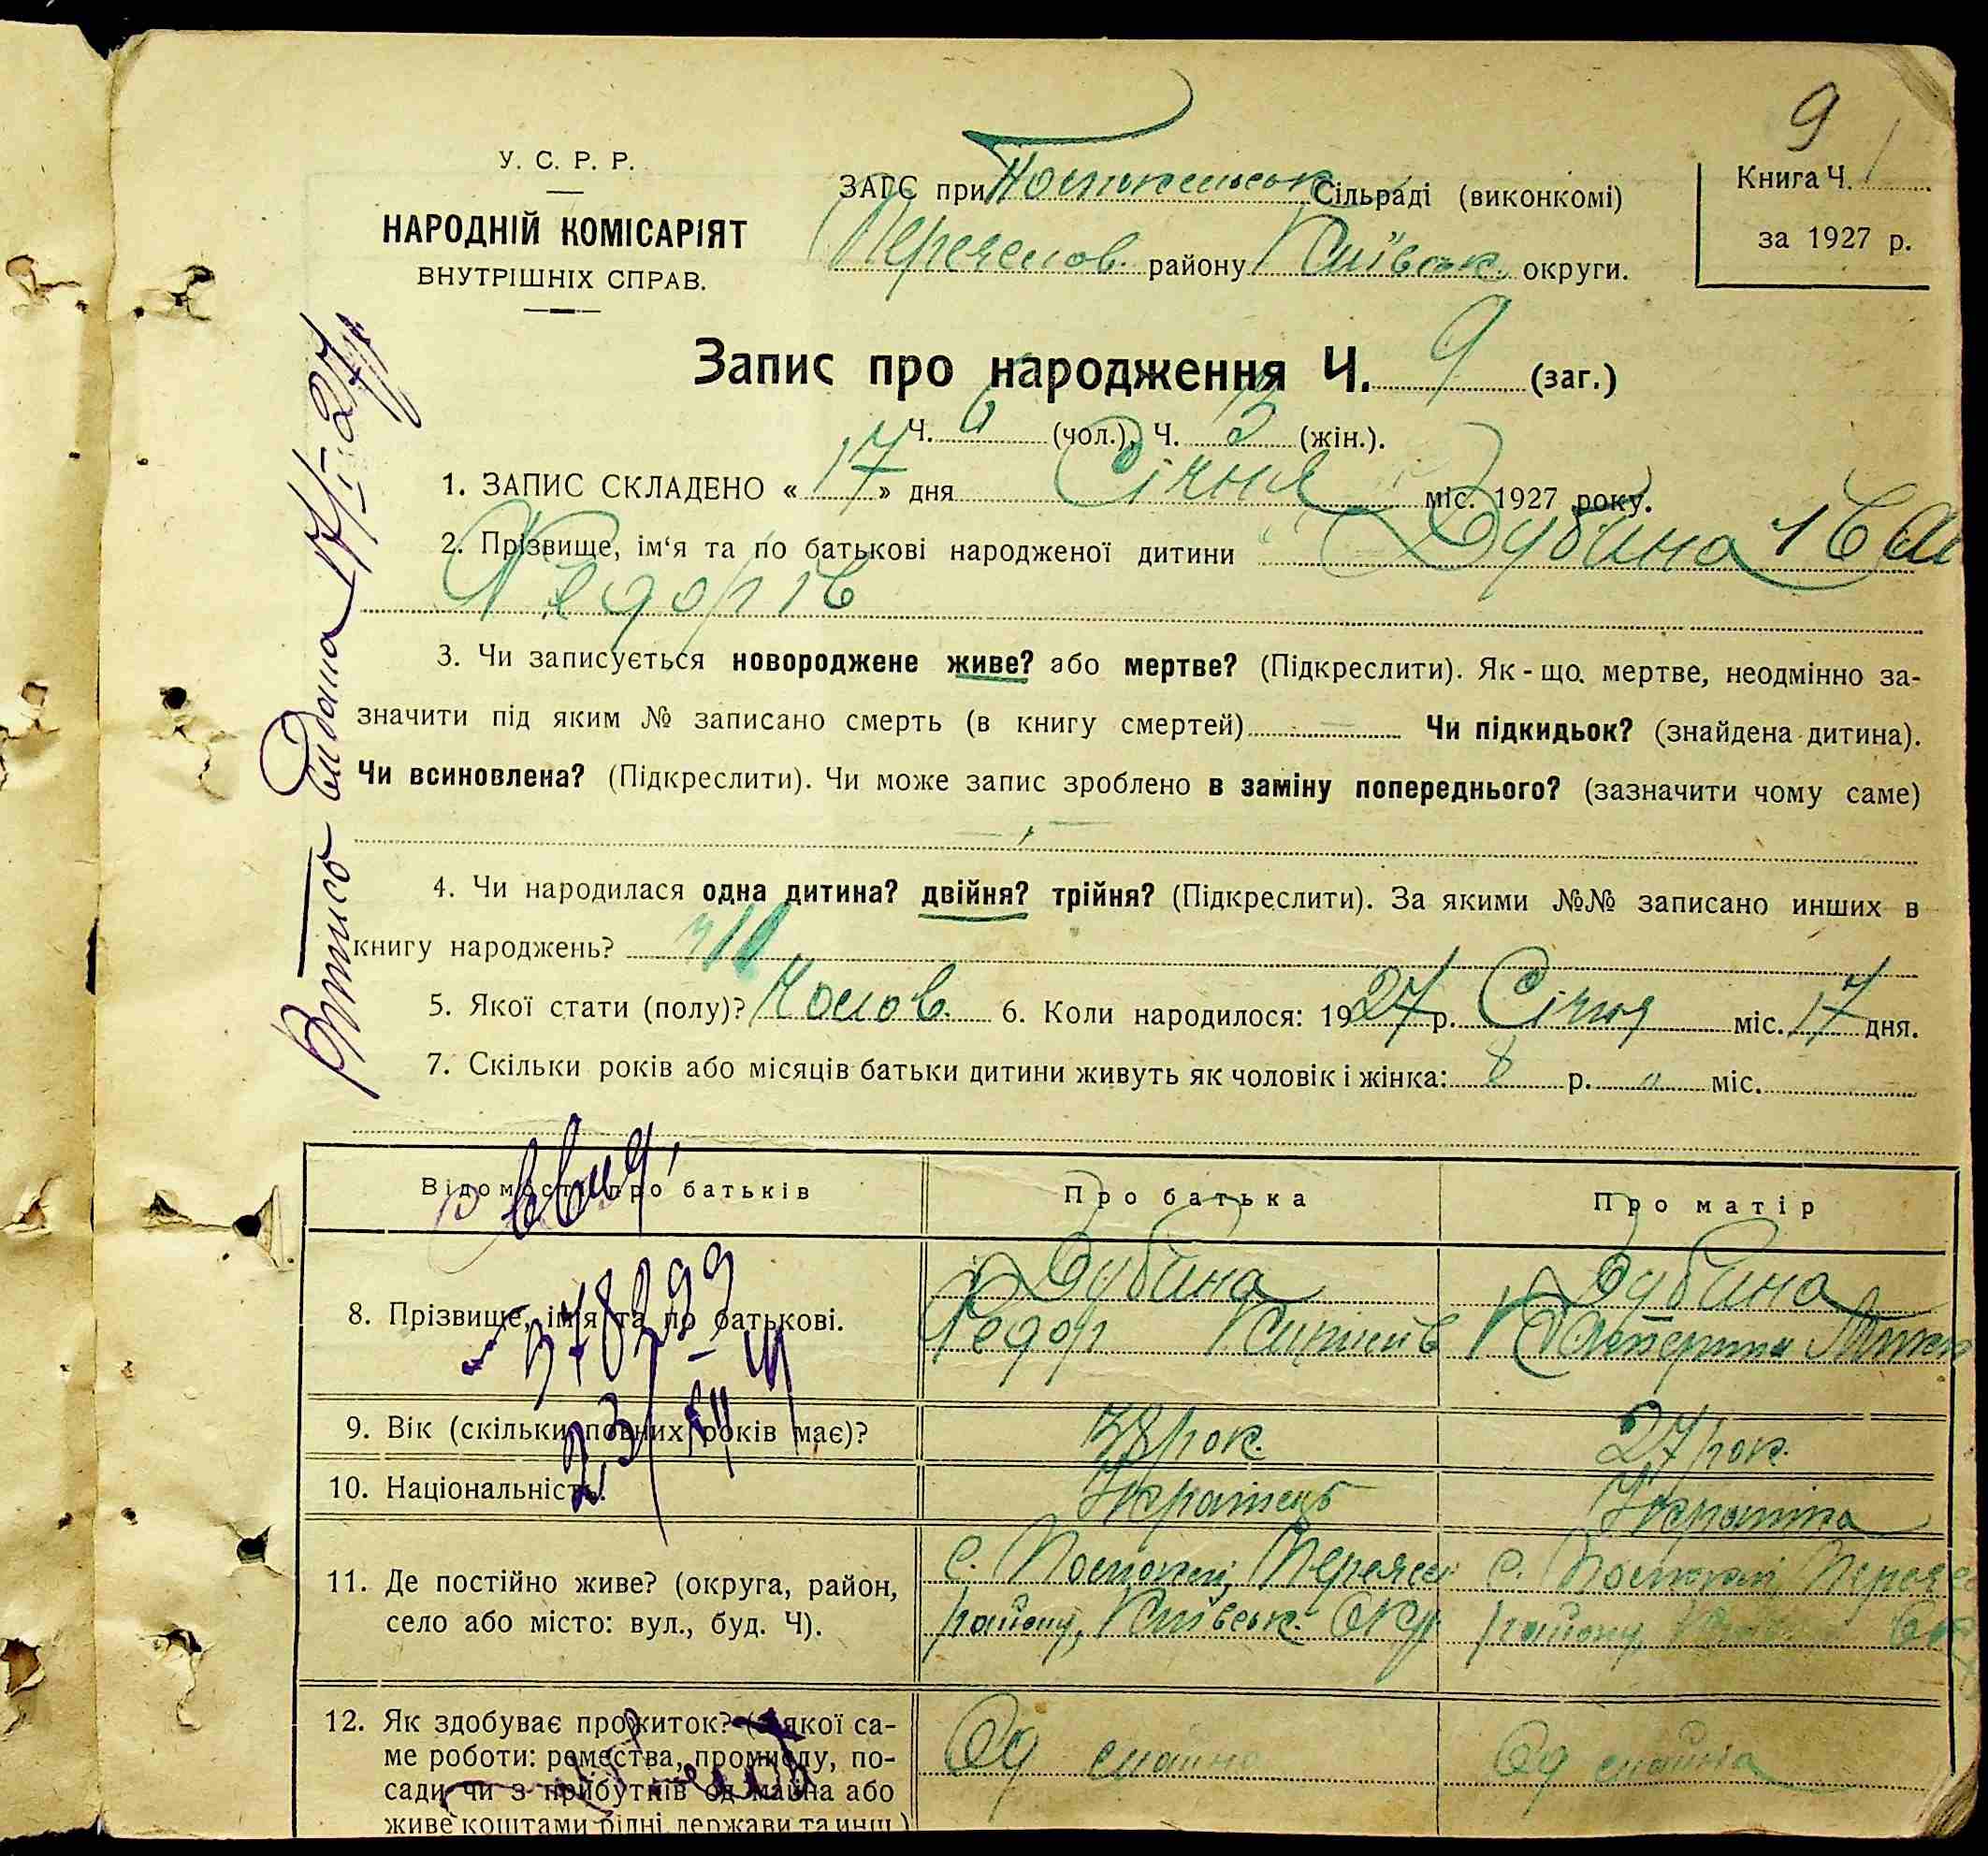 9
У. С. Р. Р.
НАРОДНІЙ КОМІСАРІЯТ
ВНУТРІШНІХ СПРАВ.
ЗАГС при Сільраді (виконкомі)
району Київськ. округи.
Книга Ч. 1
за 1927 р.
Запис про народження Ч. 9 (заг.)
Ч. 6 (чол.), Ч. 3 (жін.).
1. ЗАПИС СКЛАДЕНО « 17 » дня Січня міс. 1927 року.
2. Прізвище, ім'я та по батькові народженої дитини Дубина Іван
Федорів
3. Чи записується новороджене живе? або мертве? (Підкреслити). Як-що мертве, неодмінно за-
значити під яким № записано смерть (в книгу смертей) Чи підкидьок? (знайдена дитина).
Чи всиновлена? (Підкреслити). Чи може запис зроблено в заміну попереднього? (зазначити чому саме)
4. Чи народилася одна дитина? двійня? трійня? (Підкреслити). За якими №№ записано инших в
книгу народжень?
5. Якої стати (полу)? Чолов. 6. Коли народилося: 1927 р. Січня міс. 17 дня.
7. Скільки років або місяців батьки дитини живуть як чоловік і жінка: 8 р. " міс.
Відомості про батьків
Про батька
Про матір
8. Прізвище, ім'я та по батькові.
Дубина
Федор
Дубина
Катерина
9. Вік (скільки повних років має)?
38 рок.
27 рок.
10. Національність.
Українець
Українка
11. Де постійно живе? (округа, район,
село або місто: вул., буд. Ч).
району, Київськ. Окр.
району,
12. Як здобуває прожиток? (з якої са-
ме роботи: ремества, промислу, по-
сади чи з прибутків од майна або
живе коштами рідні, держави та инш.)
Од
Од
Витис видана 17/I-27